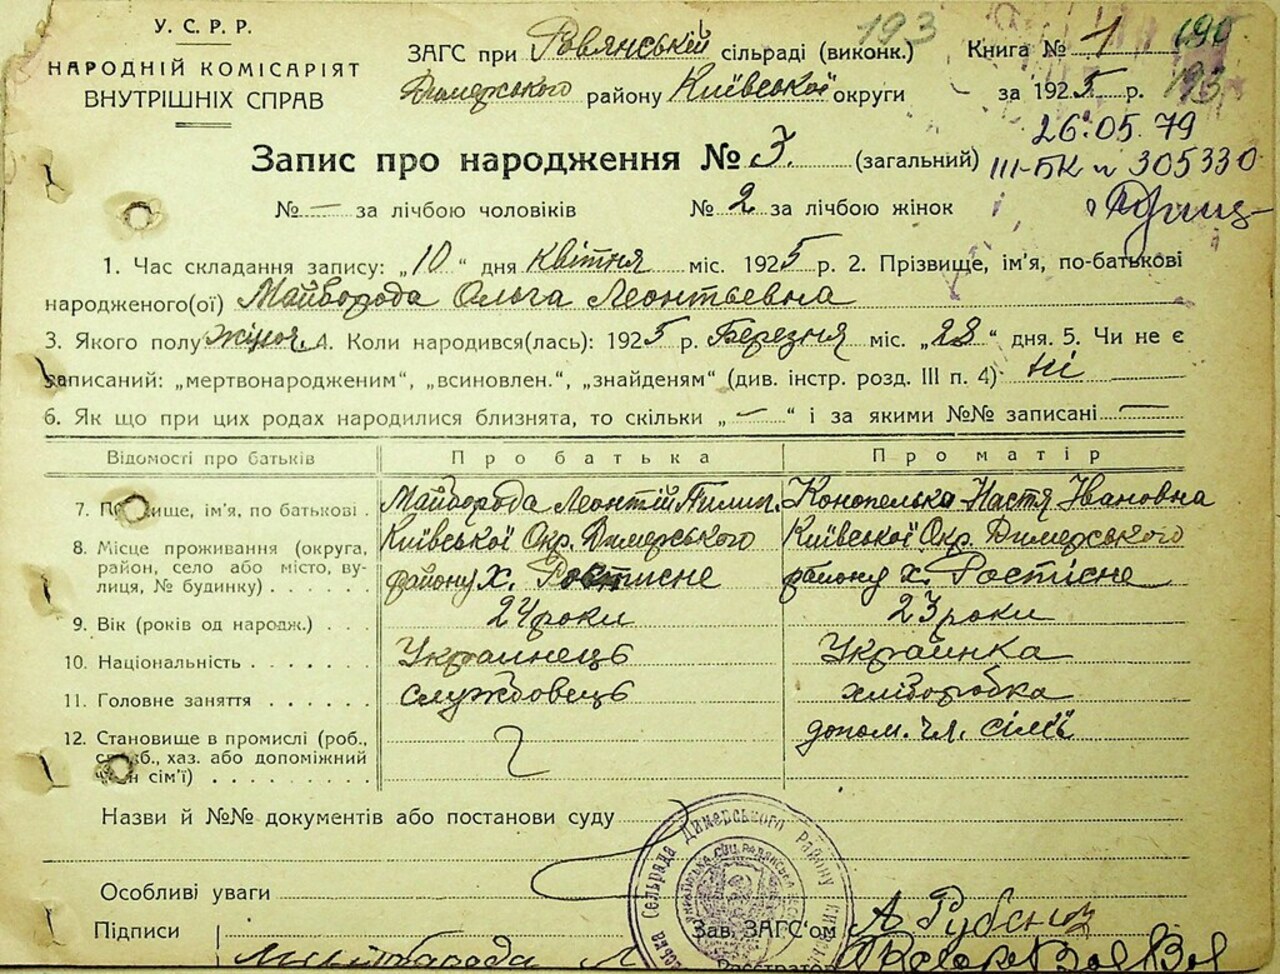 У. С. Р. Р.
НАРОДНІЙ КОМІСАРІЯТ
ВНУТРІШНІХ СПРАВ
ЗАГС при Ровянській сільраді (виконк.)
Димерського району Київської округи
193
Книга № 1
190
за 1925 р. 193
26.05.79
III-БК № 305330
Запис про народження № 3. (загальний)
№ — за лічбою чоловіків № 2 за лічбою жінок
1. Час складання запису: „10“ дня квітня міс. 1925 р. 2. Прізвище, ім'я, по-батькові
народженого(ої) Майборода Ольга Леонтьевна
3. Якого полу жіноч. 4. Коли народився(лась): 1925 р. Березня міс. „28“ дня. 5. Чи не є
записаний: „мертвонародженим“, „всиновлен.“, „знайденям“ (див. інстр. розд. III п. 4) ні
6. Як що при цих родах народилися близнята, то скільки „—“ і за якими №№ записані —
Відомості про батьків Про батька Про матір
7. ім'я, по батькові . Майборода Леонтій Пилип. Конопелька Настя Івановна
8. Місце проживання (округа, район, село або місто, вулиця, № будинку) . . . . . . Київської Окр. Димерського району х. Ростисне Київської Окр. Димерського району х. Ростісне
9. Вік (років од народж.) . . . 24 роки 23 роки
10. Національність . . . . . . . Украинець Украинка
11. Головне заняття . . . . . . службовець хліборобка
12. Становище в промислі (роб., хаз. або допоміжний сім'ї) . . . . . . . . . допом. чл. сім'ї
Назви й №№ документів або постанови суду
Особливі уваги
Підписи
Зав. ЗАГС'ом
Майборода Л
Реєстратор
Сельрада Димерського району